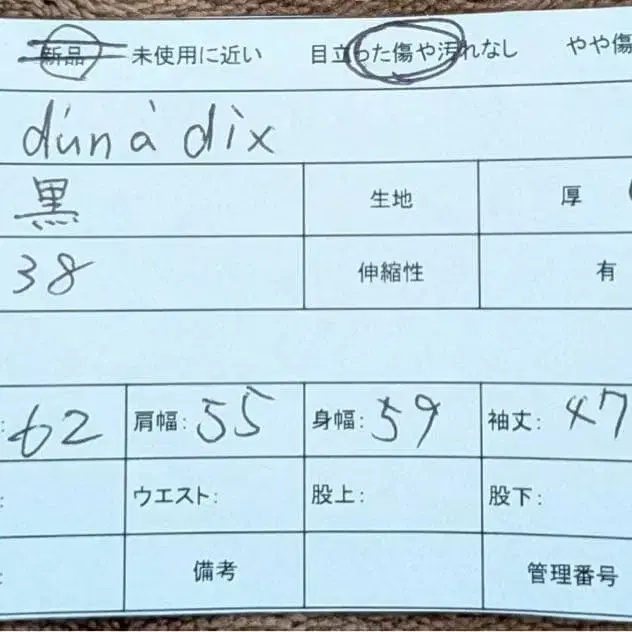 新品 未使用に近い 目立った傷や汚れなし やや傷
dúnà dìx
黒 生地 厚
38 伸縮性 有
: 62 肩幅: 55 身幅: 59 袖丈: 47
: ウエスト: 股上: 股下:
: 備考 管理番号